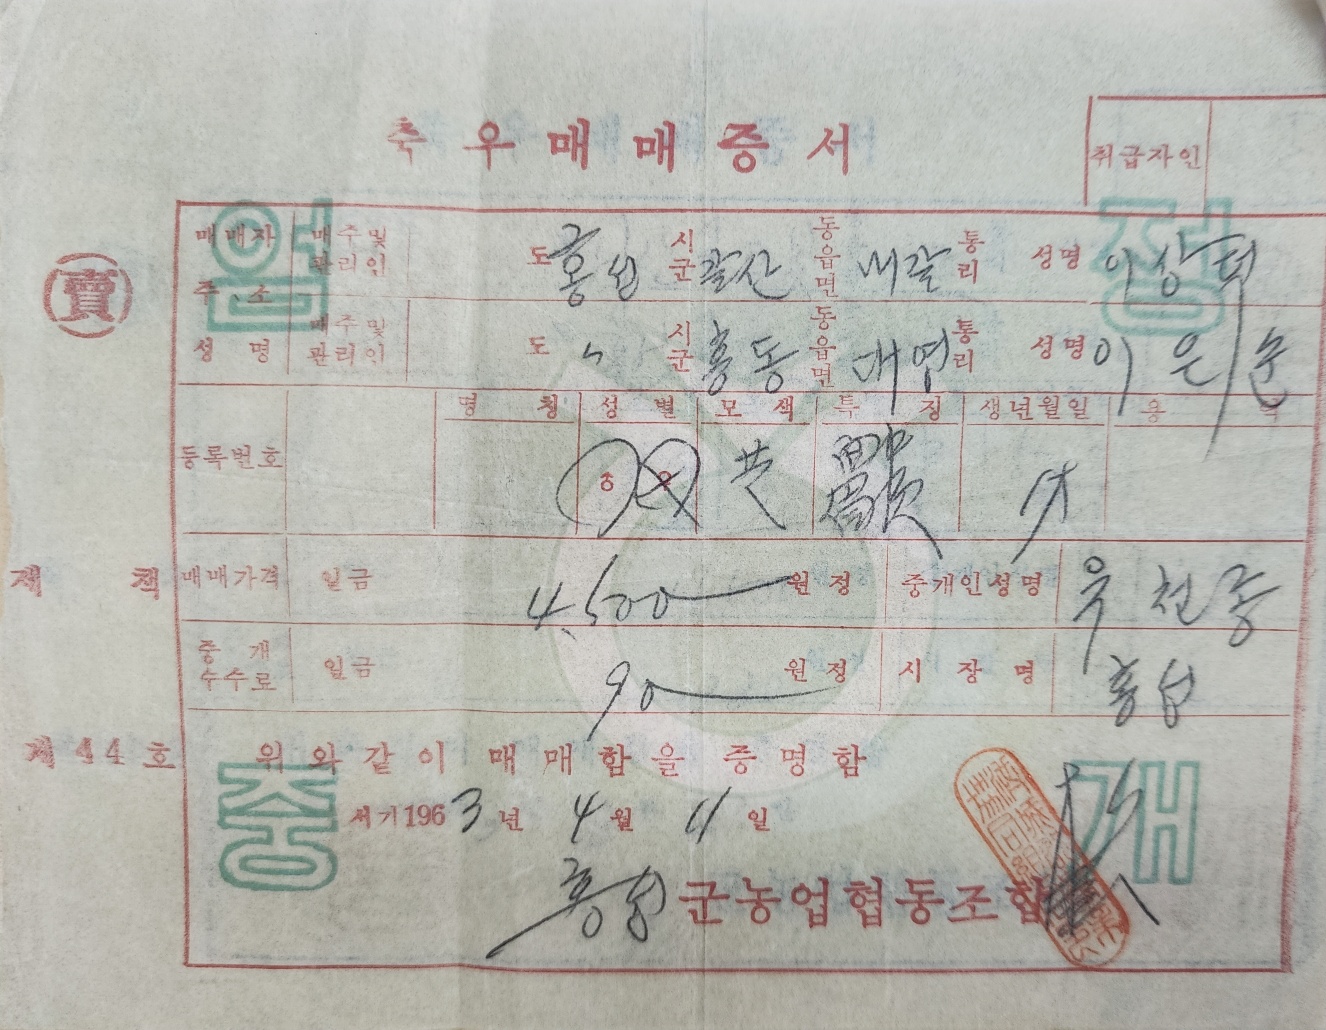 축우매매증서
취급자인
賣
엄 정
매매자 주소 성명
매주및 관리인 도 홍성 시군 갈산 동읍면 내갈 통리 성명 이상
매주및 관리인 도 〃 시군 홍동 동읍면 대영 통리 성명 이은
등록번호 명칭 성별 모색 특징 생년월일 용
제 책
매매가격 일금 4,500 원정 중개인성명 천종
중개수수료 일금 90 원정 시장명 홍성
제44호
위와같이 매매함을 증명함
서기1963년 4월 11일
홍성군농업협동조합
중 개